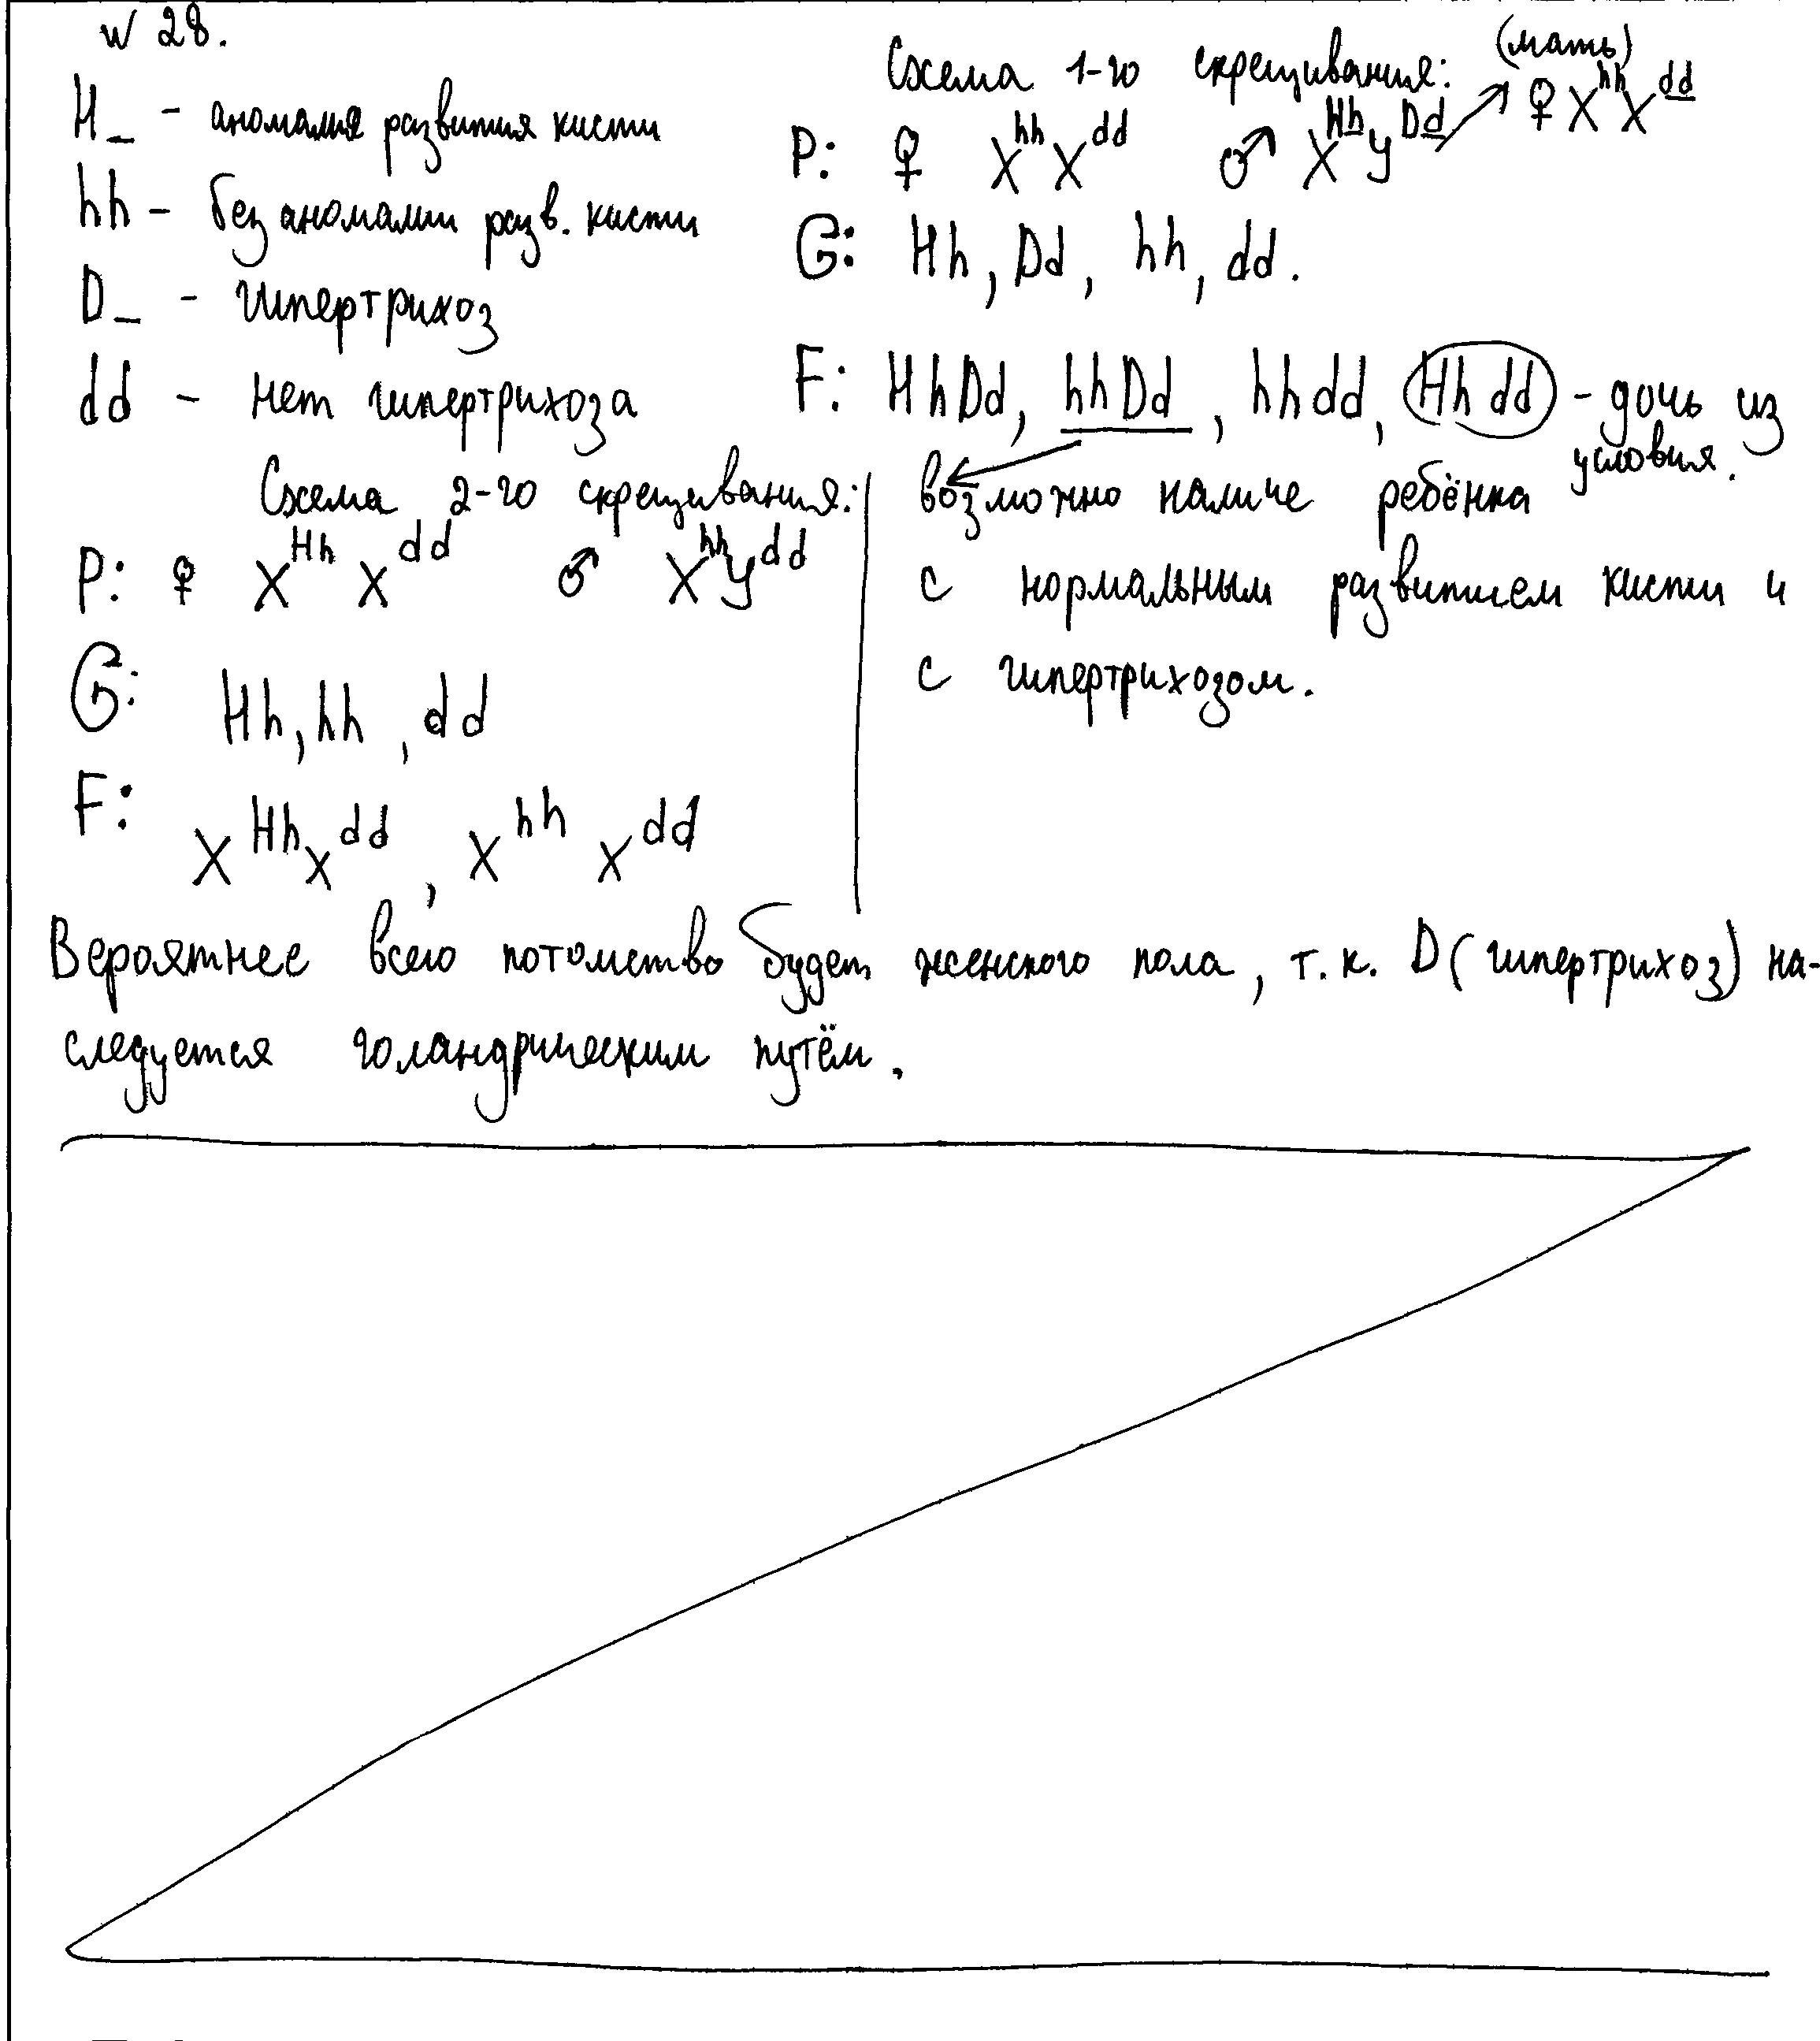 № 28.
H_ - аномалия развития кисти
hh - без аномалии разв. кисти
D_ - гипертрихоз
dd - нет гипертрихоза
Схема 1-го скрещивания:
(мать)
P: ♀ X^hh X^dd ♂ X^Hh Y^Dd → ♀ X^hh X^dd
G: Hh, Dd, hh, dd.
F: HhDd, hhDd, hhdd, Hhdd - дочь из
условия.
возможно наличе ребёнка
с нормальным развитием кисти и
с гипертрихозом.
Схема 2-го скрещивания:
P: ♀ X^Hh X^dd ♂ X^hh Y^dd
G: Hh, hh, dd
F: X^Hh X^dd, X^hh X^dd
Вероятнее всего потомство будет женского пола, т.к. D (гипертрихоз) на-
следуется голандрическим путём.